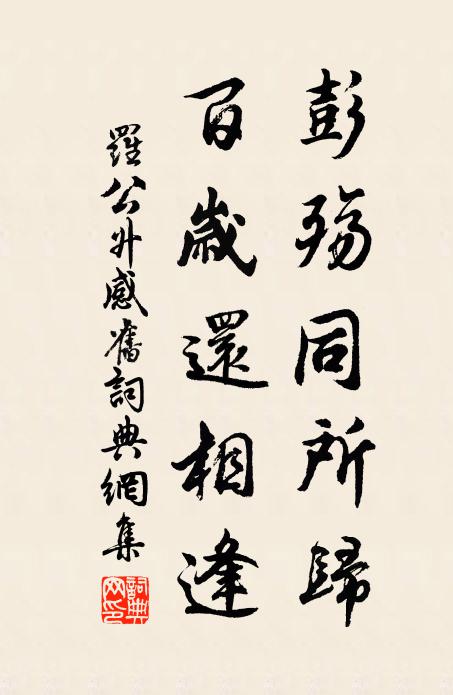 彭殤同所歸
百歲還相逢
羅公升感舊詞典網集
詞典網印